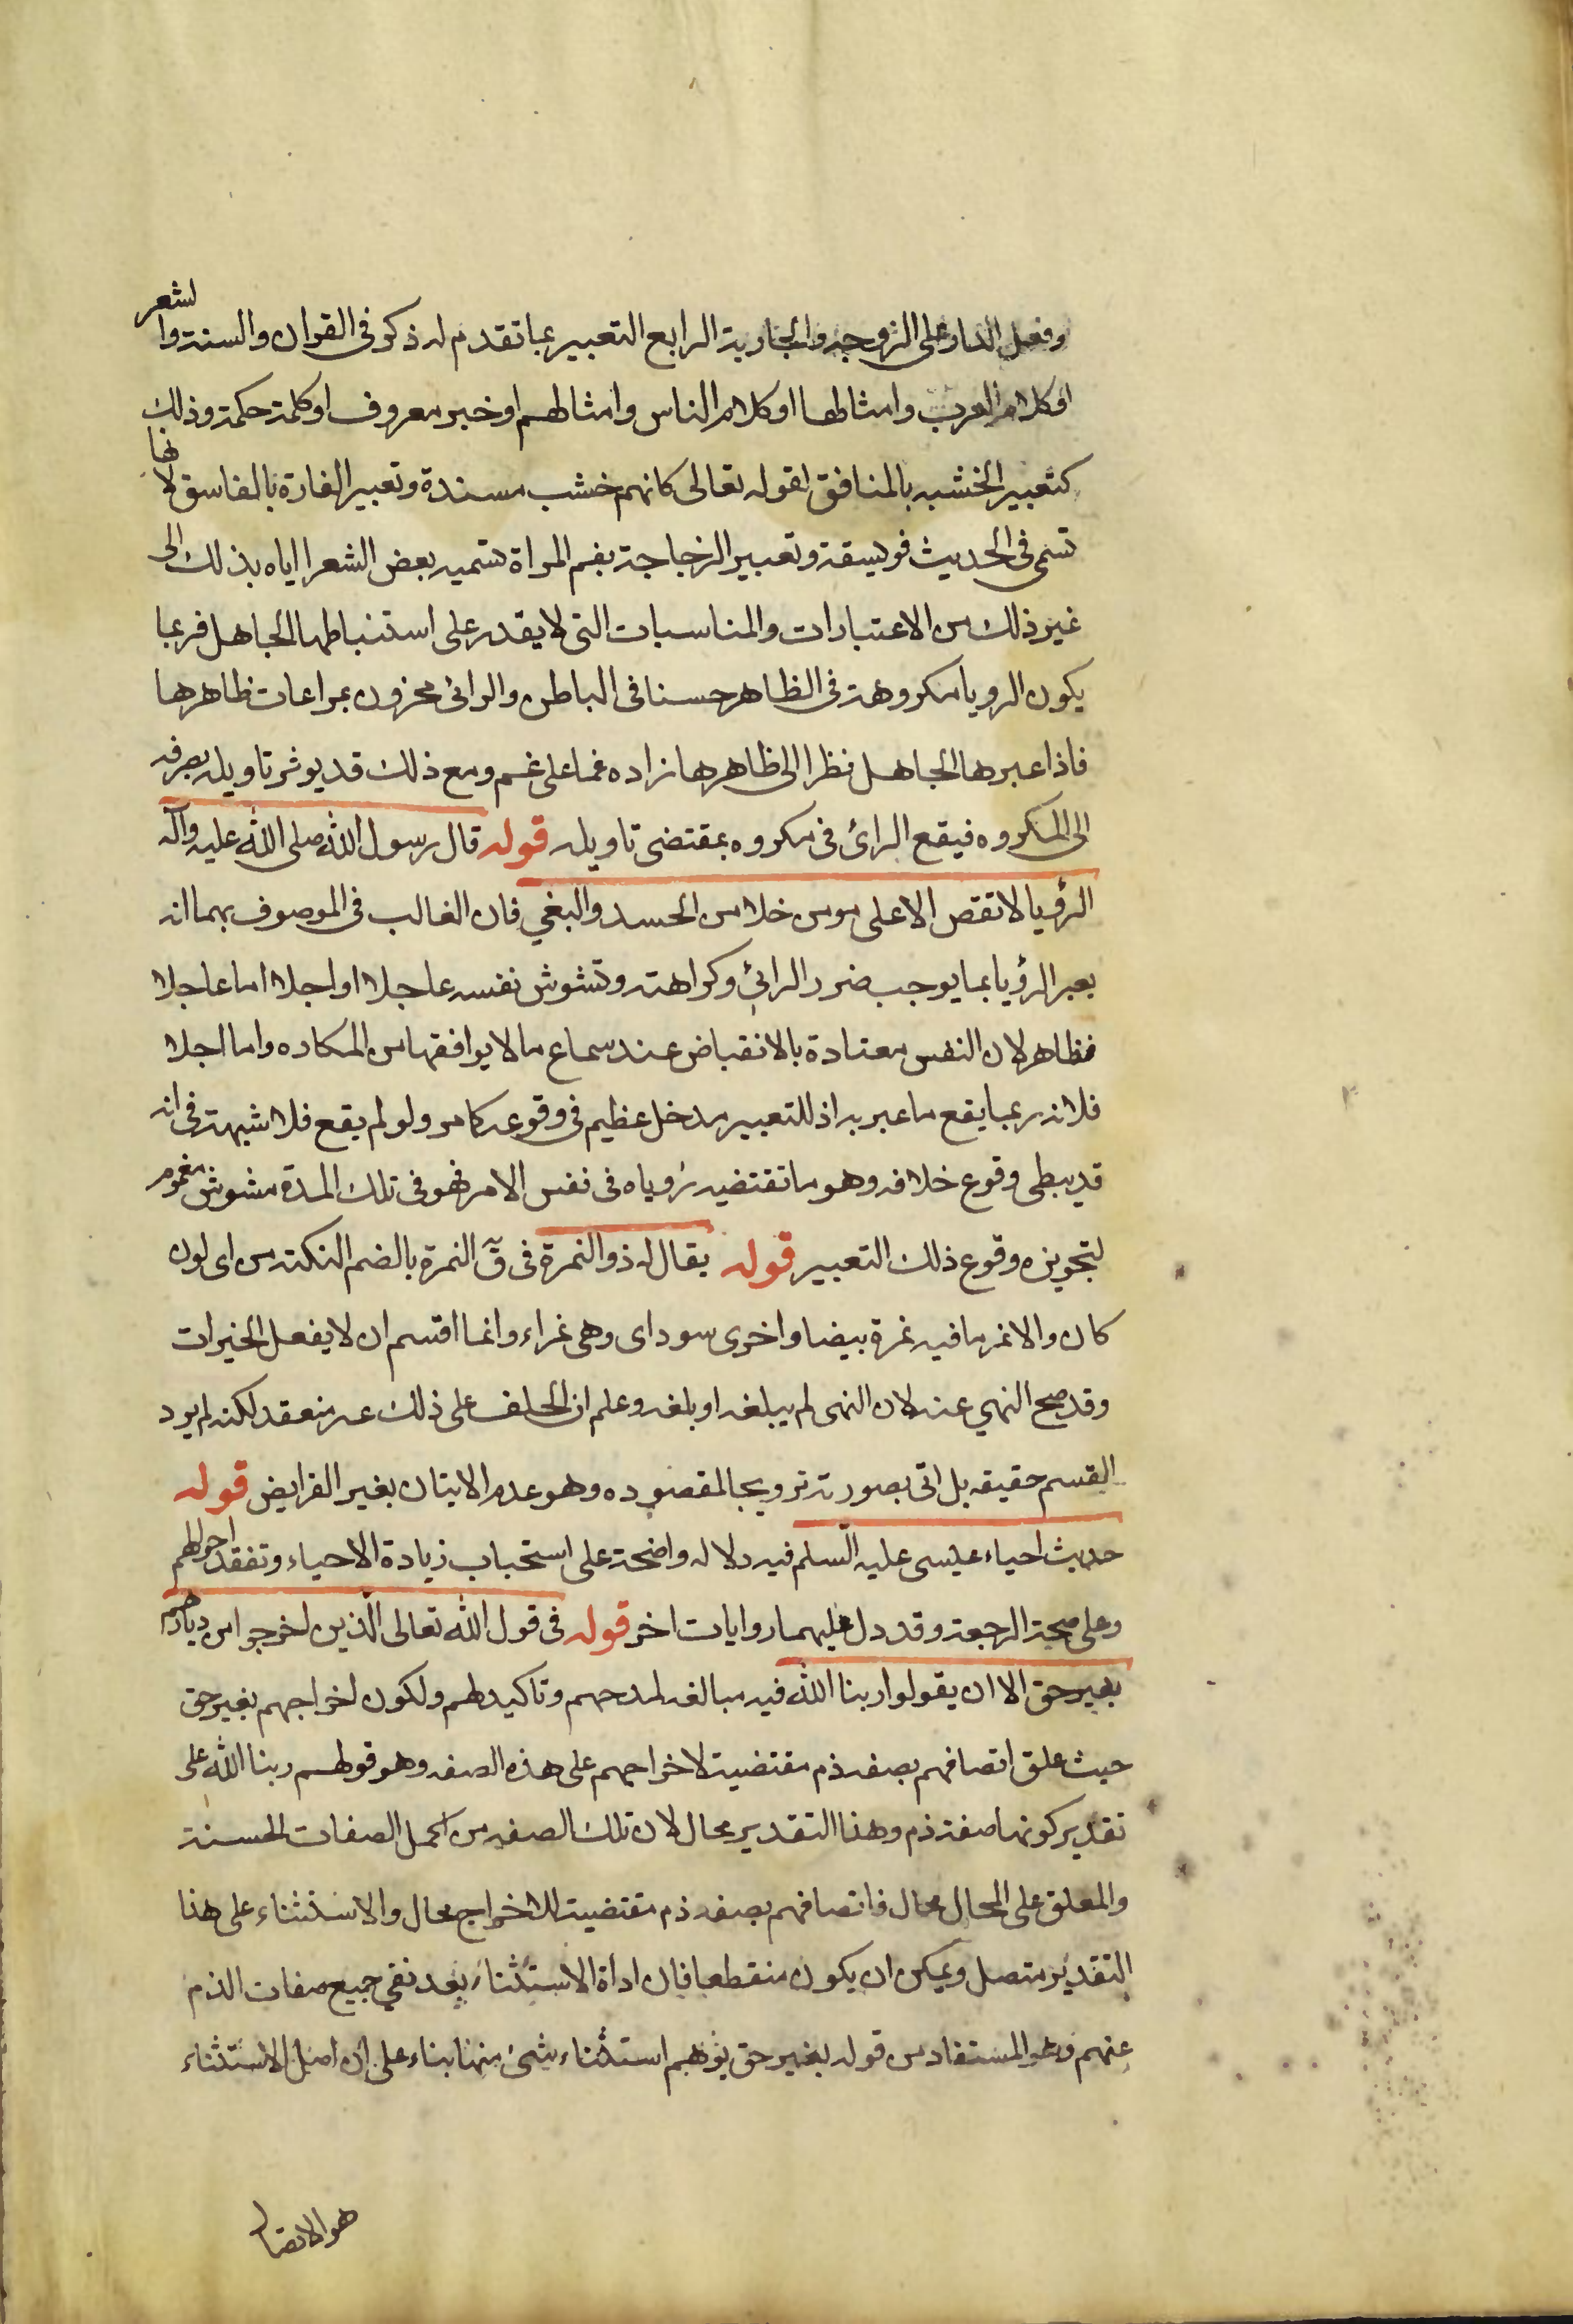 وفعل الدار على الزوجة والجارية الرابع التعبير بما تقدم له ذكر فى القران والسنة والشعر
او كلام العرب وامثالها او كلام الناس وامثالهم او خبر معروف او كلمة حكمة وذلك
كتعبير الخشبه بالمنافق لقوله تعالى كانهم خشب مسندة وتعبير الفارة بالفاسق لانها
تسمى فى الحديث فويسقة وتعبير الزجاجة بفم المراة لتسميه بعض الشعرا اياه بذلك الى
غير ذلك من الاعتبارات والمناسبات التى لا يقدر على استنباطها الجاهل فربما
يكون الرويا مكروهة فى الظاهر حسنا فى الباطن والرائى محزون بمراعات ظاهرها
فاذا عبرها الجاهل نظرا الى ظاهرها زاده غما على غم ومع ذلك قد يوثر تاويله بصرفه
الى المكروه فيقع الرائ فى مكروه بمقتضى تاويله قوله قال رسول الله صلى الله عليه وآله
الرؤيا لا تقص الا على مومن خلا من الحسد والبغي فان الغالب فى الموصوف بهما انه
يعبر الرؤيا بما يوجب ضرر الرائي وكراهته وتشوش نفسه عاجلا او اجلا اما عاجلا
فظاهر لان النفس معتادة بالانقباض عند سماع ما لا يوافقها من المكاره واما اجلا
فلانه ربما يقع ما عبر به اذ للتعبير مدخل عظيم فى وقوعه كما مر ولو لم يقع فلا شبهة فى انه
قد يبطى وقوع خلافه وهو ما تقتضيه رؤياه فى نفس الامر فهو فى تلك المدة مشوش مغموم
لتجويزه وقوع ذلك التعبير قوله يقال له ذو النمرة فى قٓ النمرة بالضم النكتة من اى لون
كان والانمر ما فيه نمرة بيضا واخرى سوداى وهى نمراء وانما اقسم ان لا يفعل الخيرات
وقد صح النهي عنه لان النهى لم يبلغه او بلغه وعلم ان الحلف على ذلك غير منعقد لكنه لم يرد
القسم حقيقه بل اتى بصورته ترويجا لمقصوده وهو عدم الاتيان بغير الفرايض قوله
حديث احياء عيسى عليه السلم فيه دلاله واضحة على استحباب زيادة الاحياء وتفقد احوالهم
وعلى صحة الرجعة وقد دل عليهما روايات اخر قوله فى قول الله تعالى الذين اخرجوا من ديارهم
بغير حق الا ان يقولوا ربنا الله فيه مبالغه لمدحهم وتاكيد لهم ولكون اخراجهم بغير حق
حيث علق اتصافهم بصفه ذم مقتضية لاخراجهم على هذه الصفه وهو قولهم ربنا الله على
تقدير كونها صفة ذم وهذا التقدير محال لان تلك الصفه من اكمل الصفات الحسنة
والمعلق على المحال محال فاتصافهم بصفه ذم مقتضية للاخراج محال والاستثناء على هذا
التقدير متصل ويمكن ان يكون منقطعا فان اداة الاستثناء بعد نفي جميع صفات الذم
عنهم وهو المستفاد من قوله بغير حق يوهم استثناء شئ منها بناء على ان اصل الاستثناء
هو الاتصال